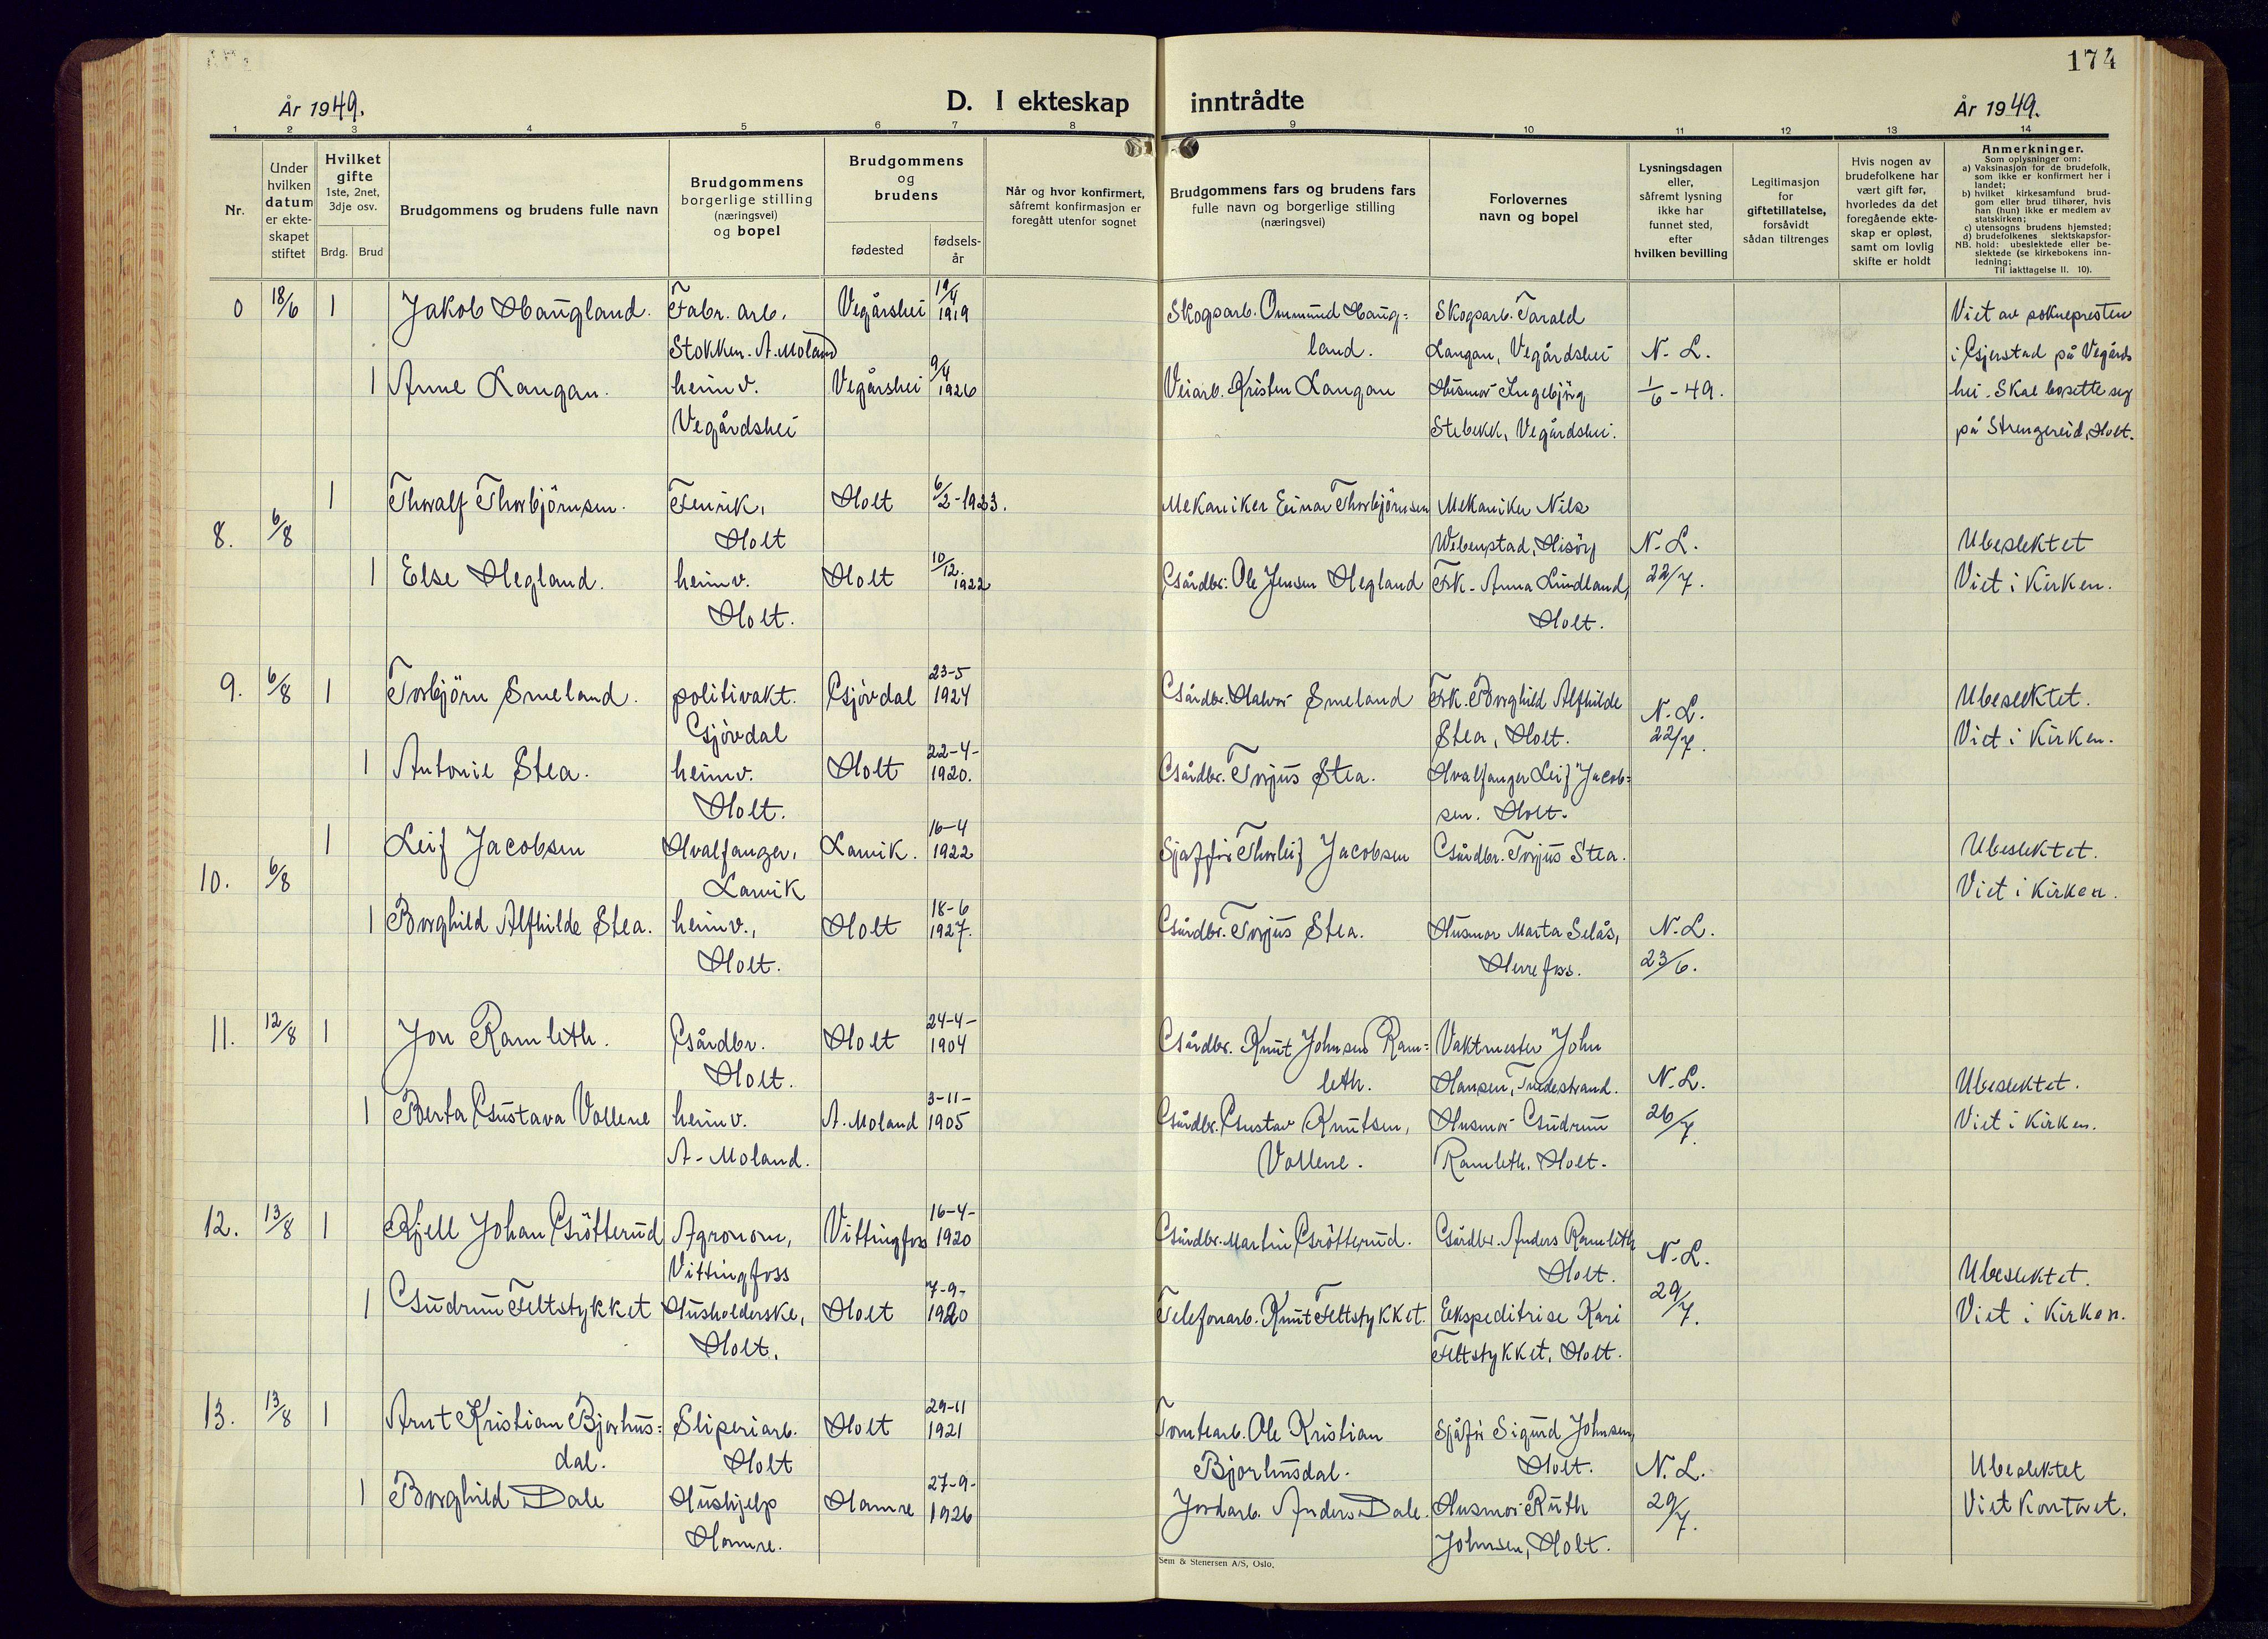 174
År 1949.
D. I ekteskap inntrådte
År 1949.
1 2 3 4 5 6 7 8 9 10 11 12 13 14
Nr.
Under hvilken datum er ekte-skapet stiftet
Hvilket gifte
1ste, 2net, 3dje osv.
Brdg. Brud
Brudgommens og brudens fulle navn
Brudgommens borgerlige stilling (næringsvei) og bopel
Brudgommens og brudens
fødested
fødsels-år
Når og hvor konfirmert, såfremt konfirmasjon er foregått utenfor sognet
Brudgommens fars og brudens fars fulle navn og borgerlige stilling (næringsvei)
Forlovernes navn og bopel
Lysningsdagen eller, såfremt lysning ikke har funnet sted, efter hvilken bevilling
Legitimasjon for giftetillatelse, forsåvidt sådan tiltrenges
Hvis nogen av brudefolkene har vært gift før, hvorledes da det foregående ekte-skap er opløst, samt om lovlig skifte er holdt
Anmerkninger.
Som oplysninger om:
a) Vaksinasjon for de brudefolk, som ikke er konfirmert her i landet;
b) hvilket kirkesamfund brud-gom eller brud tilhører, hvis han (hun) ikke er medlem av statskirken;
c) utensogns brudens hjemsted;
d) brudefolkenes slektskapsfor-
NB. hold: ubeslektede eller be-slektede (se kirkebokens inn-ledning;
Til iakttagelse II. 10).
0 18/6 1 Jakob Haugland. Fabr. arb. Vegårshei 19/4 1919 Skogsarb. Ommund Haug= Skogsarb. Tarald Viet av soknepresten
Stokken. A. Moland land. Langan, Vegårdshei N. L. i Gjerstad på Vegårds
1 Anne Langan. heimv. Vegårshei 9/4 1926 Veiarb. Kristen Langan Husmor Ingebjörg 1/6 - 49. hei. Skal bosette seg
Vegårdshei Stebekk, Vegårdshei. på Strengereid, Holt.
1 Thoralf Thorbjörnsen. Fenrik, Holt 6/2-1923. Mekaniker Einar Thorbjörnsen Mekaniker Nils
8. 6/8 Holt Webenstad, Hisöy N. L. Ubeslektet
1 Else Hegland. heimv. Holt 10/12. 1922 Gårdbr: Ole Jensen Hegland Frk. Anna Lundland, 22/7. Viet i Kirken.
Holt. Holt.
9. 6/8 1 Torbjörn Smeland. politivakt. Gjövdal 23-5 1924 Gårdbr. Halvor Smeland Frk. Borghild Alfhilde N. L. Ubeslektet.
Gjövdal Stea, Holt. 22/7. Viet i Kirken.
1 Antonie Stea. heimv. Holt 22-4- 1920. Gårdbr. Torjus Stea. Hvalfanger Leif Jacob=
Holt. sen. Holt.
1 Leif Jacobsen Hvalfanger, Larvik. 16-4 1922 Sjaffør Thorleif Jacobsen Gårdbr. Torjus Stea. Ubeslektet.
10. 6/8 Larvik Viet i Kirken.
1 Borghild Alfhilde Stea. heimv., Holt 18-6 1927. Gårdbr. Torjus Stea. Husmor Marta Selås, N. L.
Holt. Herefoss. 23/6.
11. 12/8 1 Jon Ramleth. Gårdbr. Holt 24-4- 1904 Gårdbr. Knut Johnsen Ram= Vaktmester John
Holt. leth. Hansen, Tvedestrand. N. L. Ubeslektet.
1 Berta Gustava Vollene heimv. A. Moland 3-11- 1905 Gårdbr. Gustav Knutsen, Husmor Gudrun 26/7. Viet i Kirken.
A. Moland. Vollene. Ramleth, Holt.
12. 13/8 1 Kjell Johan Grötterud Agronom, Vittingfoss 16-4- 1920 Gårdbr. Martin Grötterud. Gårdbr. Anders Ramleth N. L.
Vittingfoss Holt. Ubeslektet.
1 Gudrun Feltstykket Husholderske, Holt 7-9- 1920 Telefonarb. Knut Feltstykket. Ekspeditrise Kari 29/7. Viet i Kirken.
Holt. Feltstykket, Holt.
13. 13/8 1 Arnt Kristian Bjorhus= Sliperiarb. Holt 29-11 1921 Tomtearb. Ole Kristian Sjåfør Sigurd Johnsen,
dal. Holt Bjorhusdal. Holt. N. L. Ubeslektet
1 Borghild Dale Hushjelp Hamre 27-9- 1926 Jordarb. Anders Dale. Husmor Ruth 29/7. Viet Kontoret.
Hamre. Johnsen, Holt.
Sem & Stenersen A/S, Oslo.